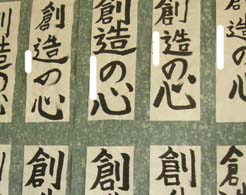 創造の心
創造の心
創造の心
創造の心
創造の心
創
創
創
創